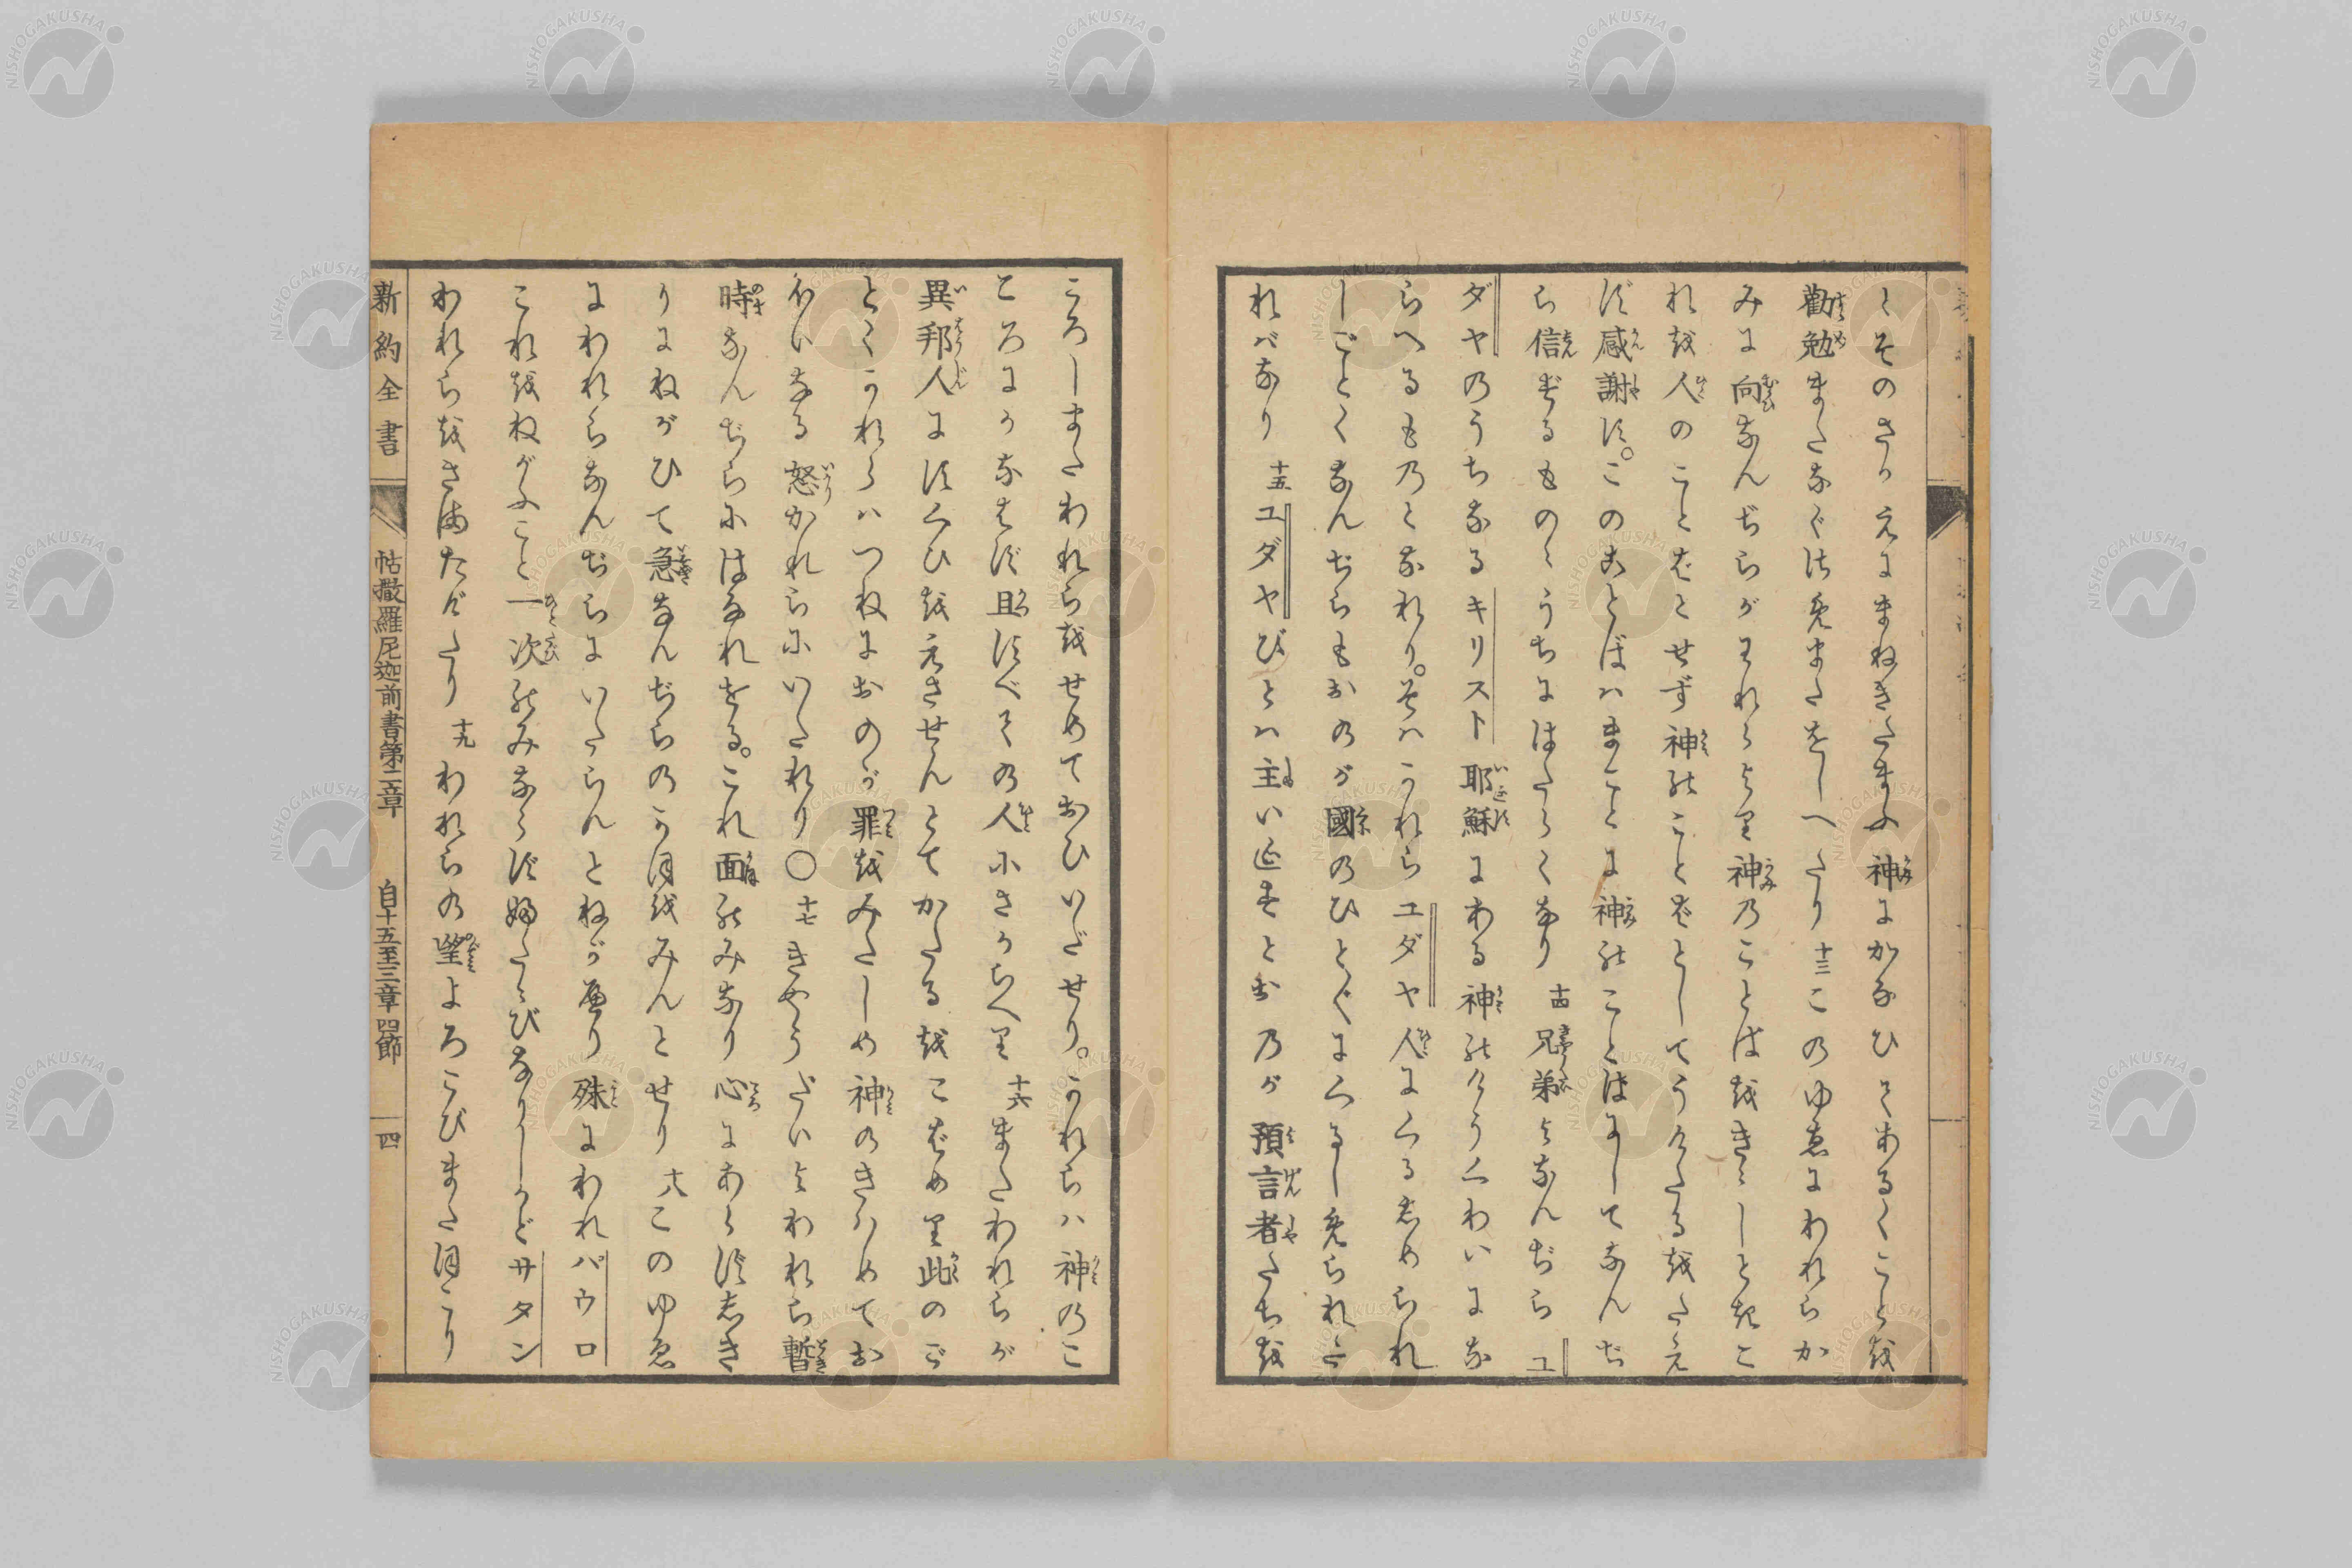 とそのさかえにまねきたまふ神にかなひてあるくことを
勸勉またなぐさめまたをしへたり 十三 このゆゑにわれらか
みに向なんぢらがわれらより神のことばをきゝしときこ
れを人のことばとせず神のことばとしてうけたるをたえ
ず感謝す。このことばハまことに神のことばにしてなんぢ
ら信ずるものゝうちにはたらくなり 十四 兄弟よなんぢらユ
ダヤのうちなるキリスト耶穌にある神のけうくわいにな
らへるものとなれり。そハかれらユダヤ人にくるしめられ
しごとくなんぢらもおのが國のひとびとにくるしめられた
れバなり 十五 ユダヤびとハ主いえすとおのが預言者たちを
ころしまたわれらをせめておひいだせり。かれらハ神のこ
ころにかなはず且すべての人にさからへり 十六 またわれらが
異邦人にすくひをえさせんとてかたるをこばめり此のご
とくかれらハつねにおのが罪をみたしめ神のきはめてお
ほいなる怒かれらにいたれり〇 十七 きやうだいよわれら暫
時なんぢらにはなれをる。これ面のみなり心にあらずしき
りにねがひて急なんぢらのかほをみんとせり 十八 このゆゑ
にわれらなんぢらにいたらんとねがへり殊にわれパウロ
これをねがふこと一次のみならず婦たゝびなりしかどサタン
われらをさまたげたり 十九 われらの望よろこびまたほこり
新約全書 帖撒羅尼迦前書第二章 自十五至三章四節 四